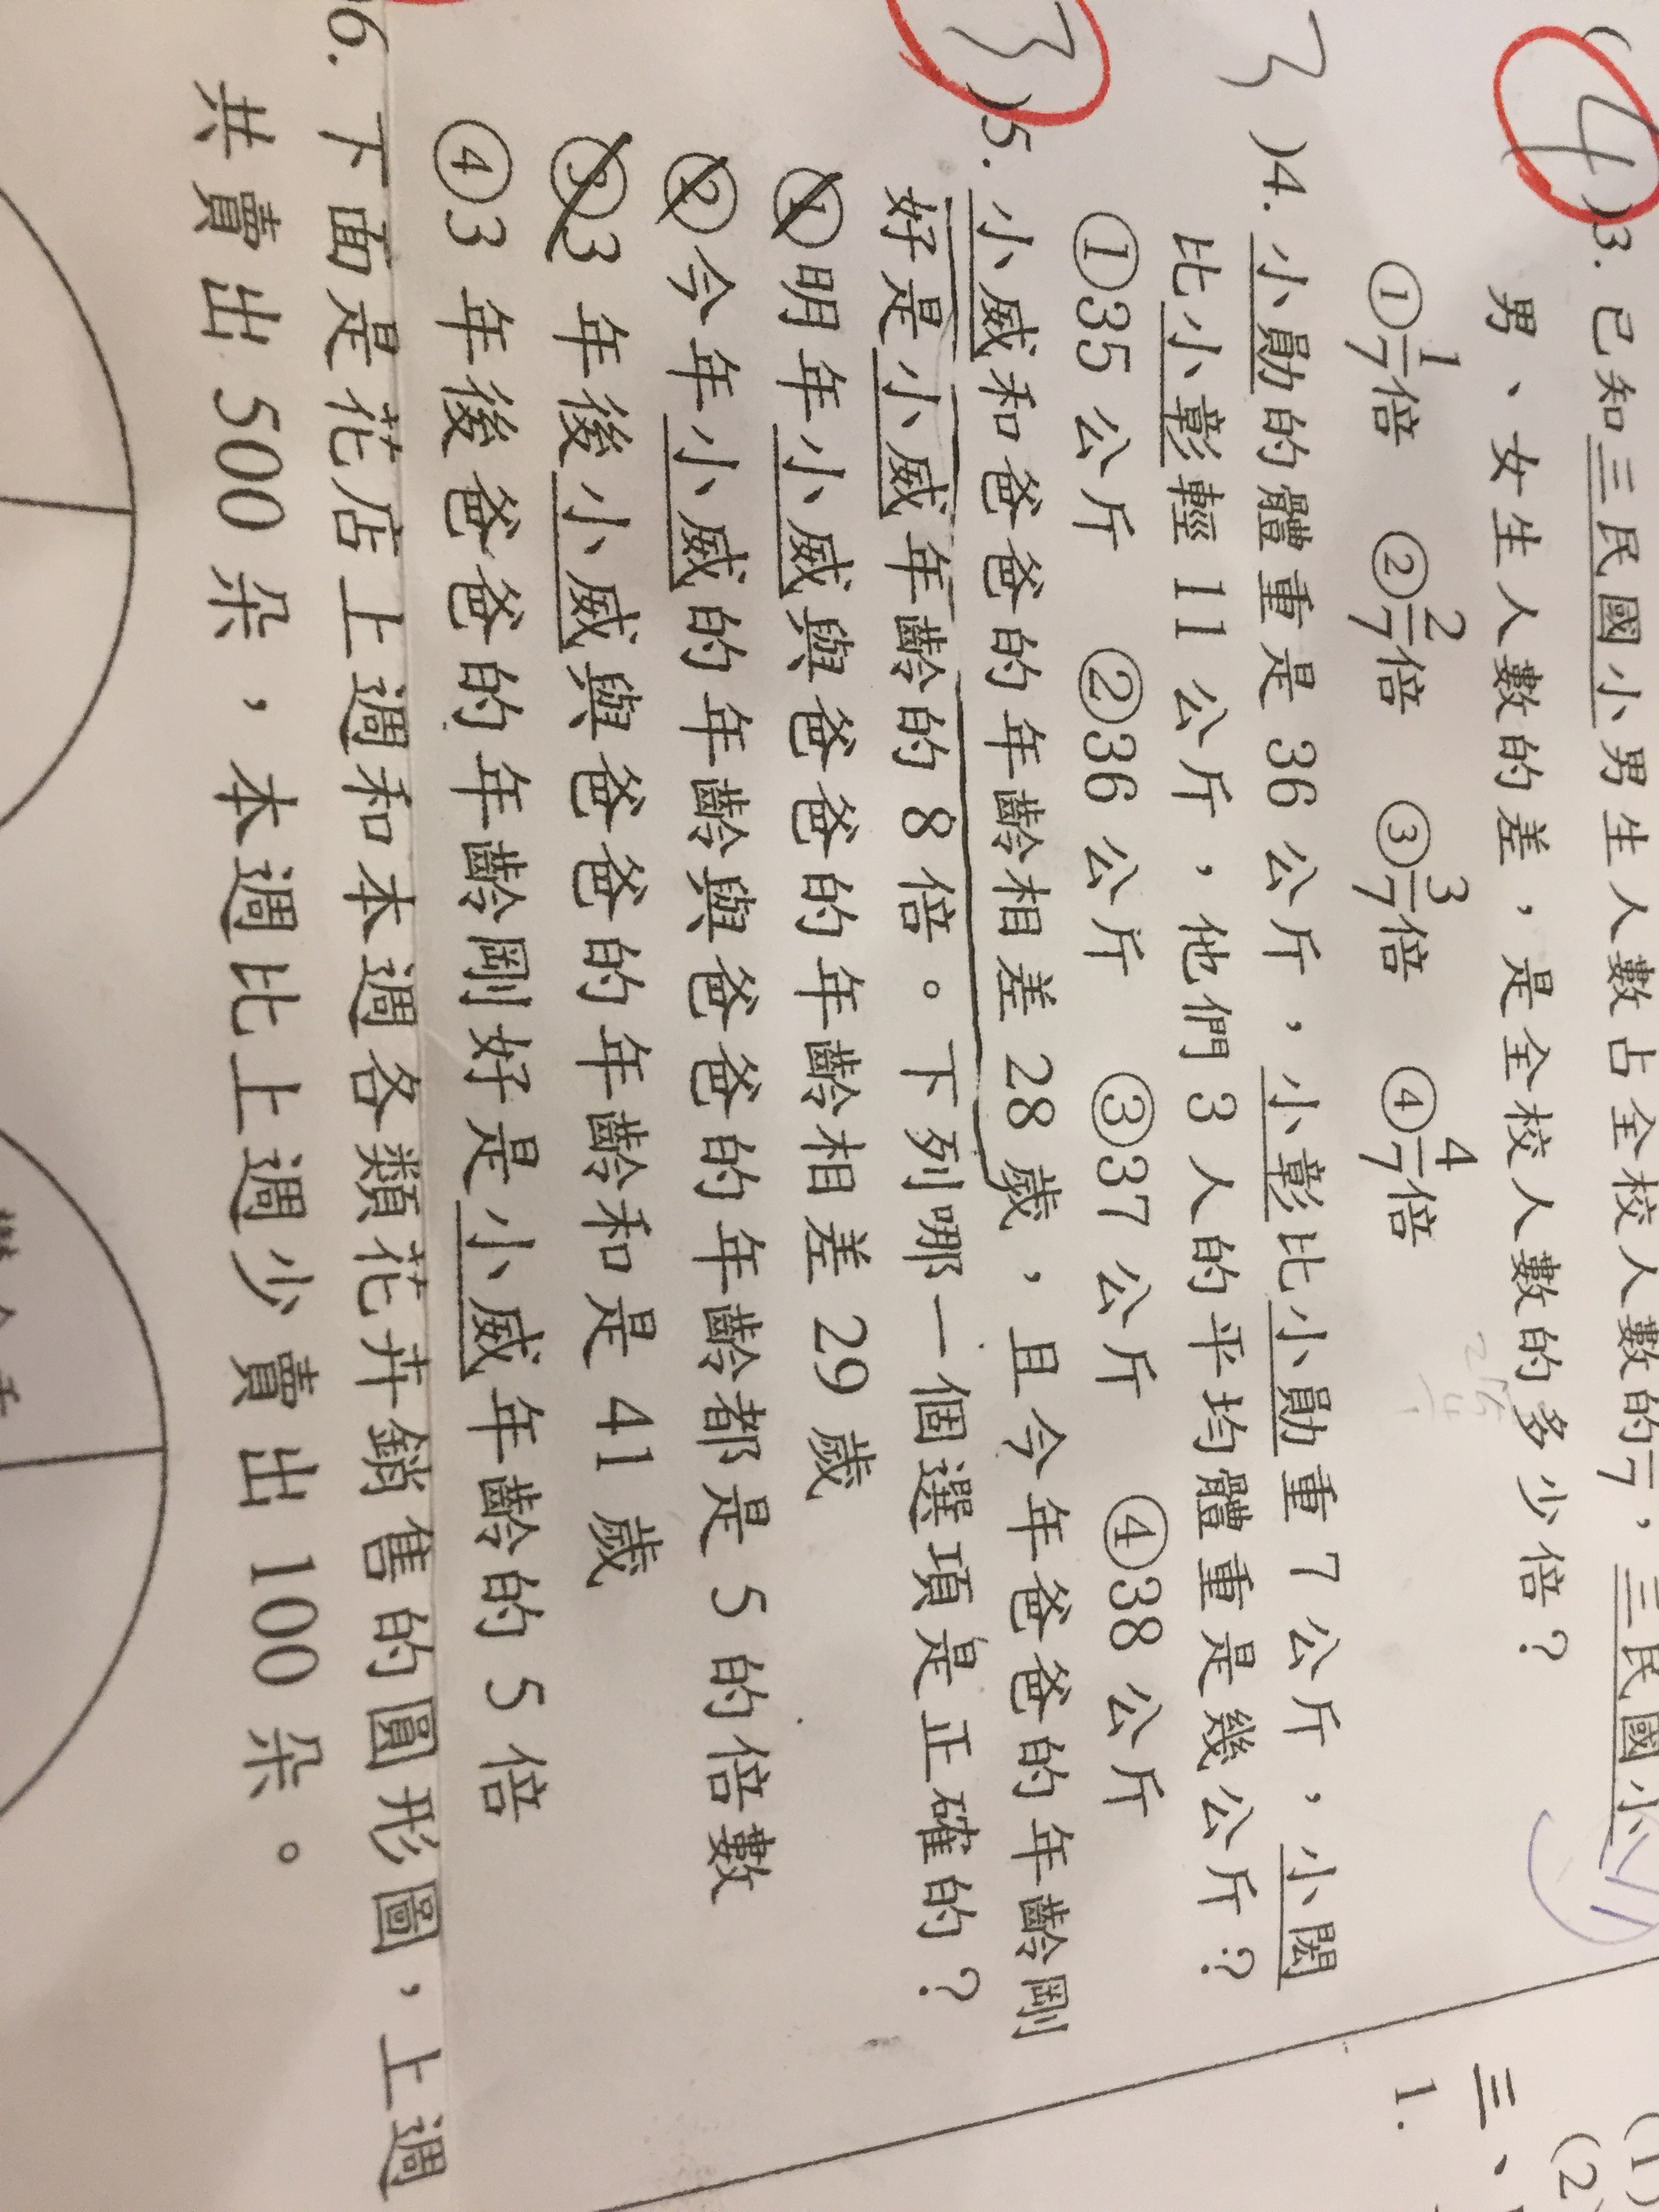 (4)3. 已知三民國小男生人數占全校人數的 7，三民國小
男、女生人數的差，是全校人數的多少倍？
①1/7倍 ②2/7倍 ③3/7倍 ④4/7倍
3)4. 小勛的體重是 36 公斤，小彰比小勛重 7 公斤，小閎
比小彰輕 11 公斤，他們 3 人的平均體重是幾公斤？
①35 公斤 ②36 公斤 ③37 公斤 ④38 公斤
3)5. 小威和爸爸的年齡相差 28 歲，且今年爸爸的年齡剛
好是小威年齡的 8 倍。下列哪一個選項是正確的？
①明年小威與爸爸的年齡相差 29 歲
②今年小威的年齡與爸爸的年齡都是 5 的倍數
③3 年後小威與爸爸的年齡和是 41 歲
④3 年後爸爸的年齡剛好是小威年齡的 5 倍
6. 下面是花店上週和本週各類花卉銷售的圓形圖，上週
共賣出 500 朵，本週比上週少賣出 100 朵。
(1)
(2)
三、
1.